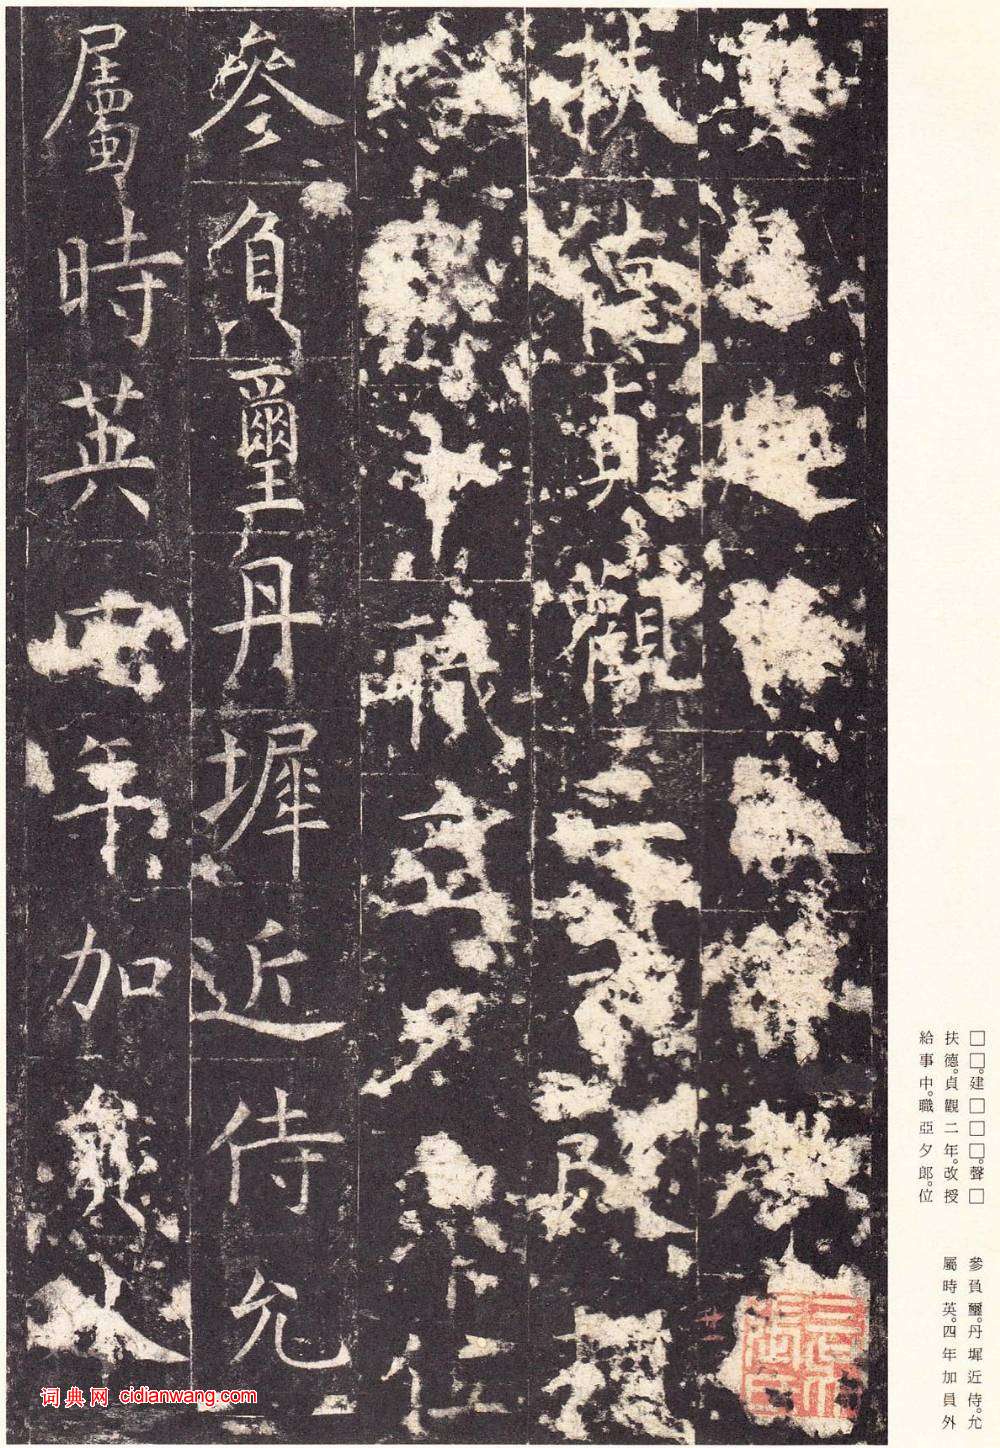 扶德貞觀二年改授
給事中職亞夕郎位
參負璽丹墀近侍允
屬時英四年加員外
□□。建□□□。聲□
扶德。貞觀二年。改授
給事中。職亞夕郎。位
參負璽。丹墀近侍。允
屬時英。四年加員外
廿二
词典网 cidianwang.com